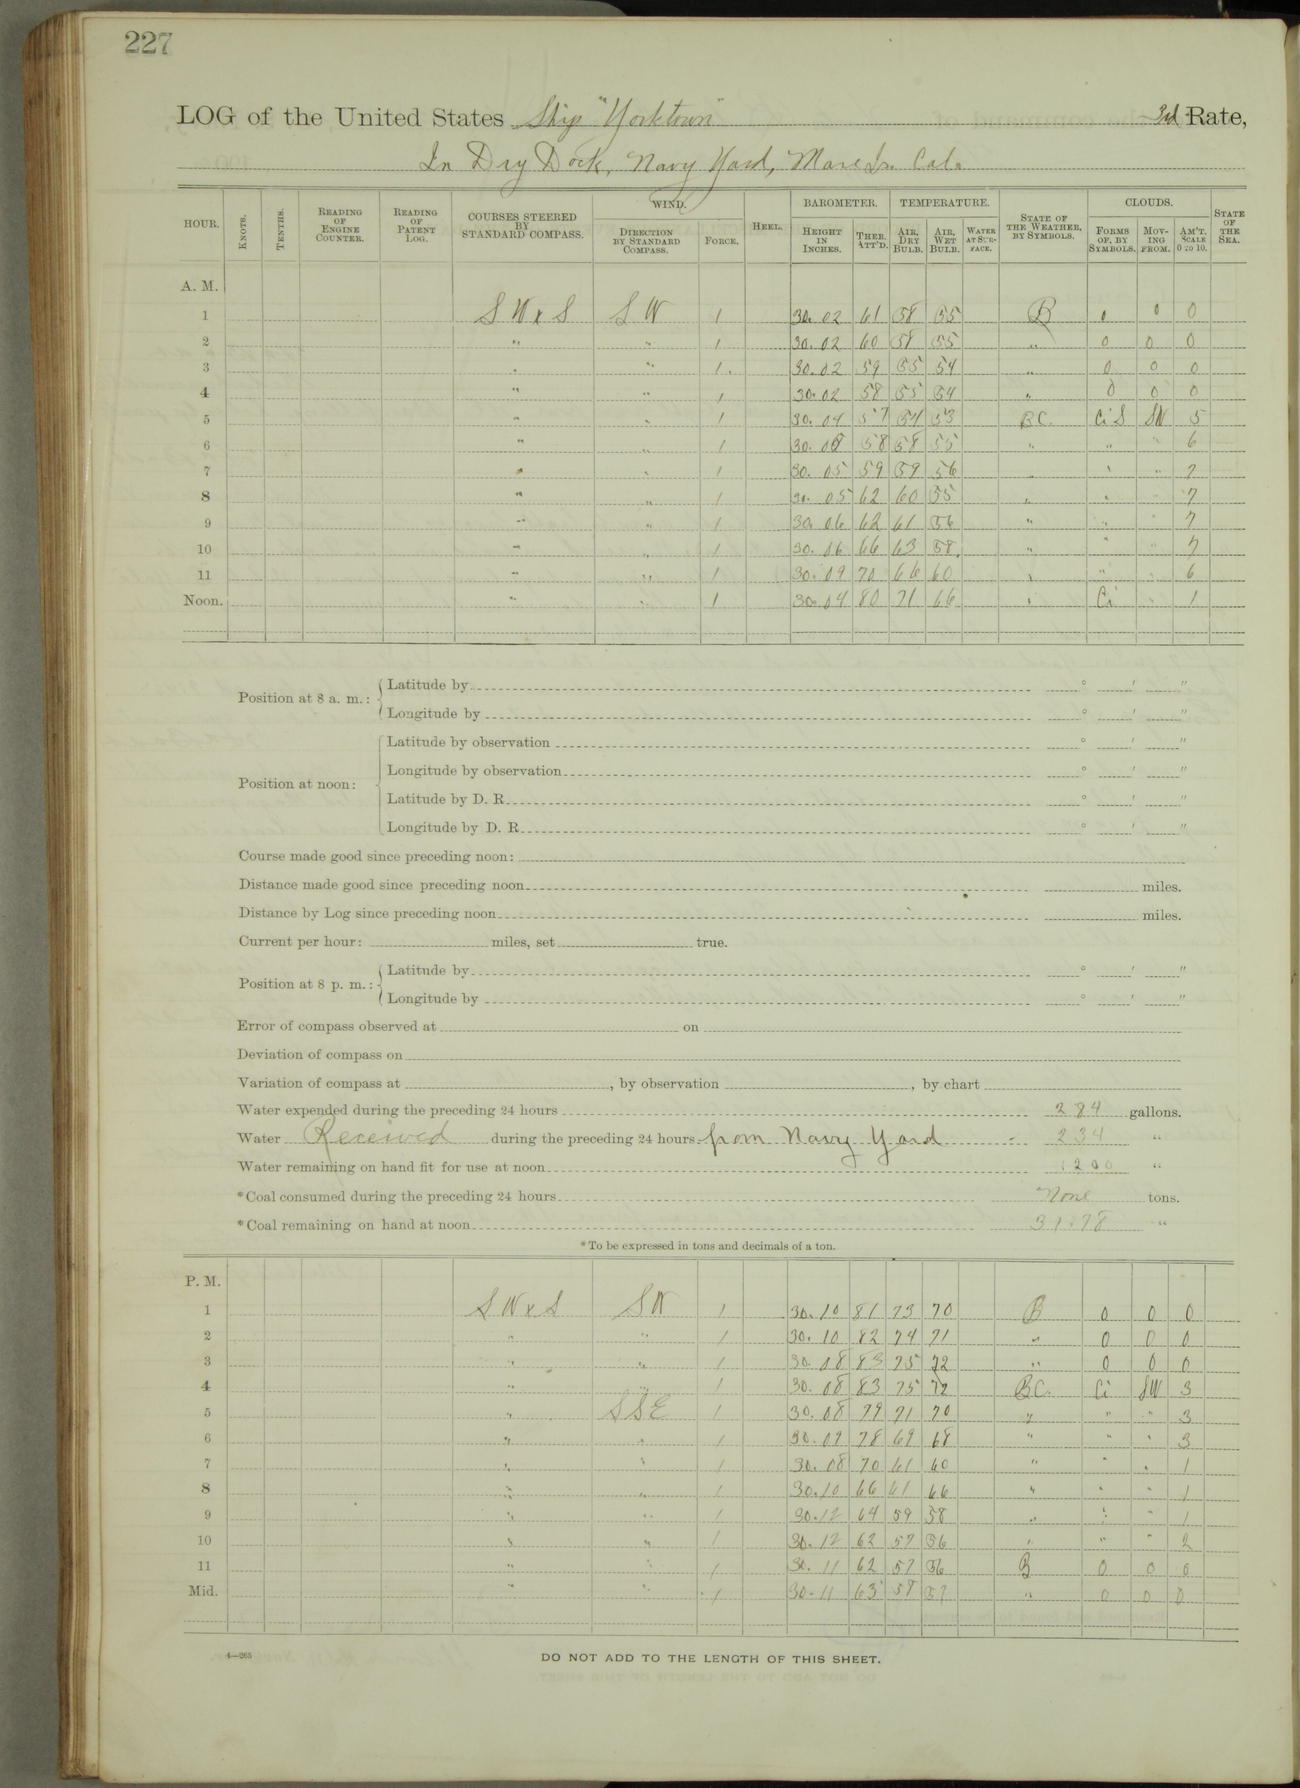 227
LOG of the United States Ship "Yorktown" 3rd Rate,
In Dry Dock, Navy Yard, Mare Is. Cal.
HOUR. KNOTS. TENTHS. READING OF ENGINE COUNTER. READING OF PATENT LOG. COURSES STEERED BY STANDARD COMPASS. WIND. DIRECTION BY STANDARD COMPASS. FORCE. HEEL. BAROMETER. HEIGHT IN INCHES. THER. ATT'D. TEMPERATURE. AIR, DRY BULB. AIR, WET BULB. WATER AT SURFACE. STATE OF THE WEATHER, BY SYMBOLS. CLOUDS. FORMS OF, BY SYMBOLS. MOVING FROM. AM'T. SCALE 0 TO 10. STATE OF THE SEA.
A. M.
1 S W x S S W 1 30.02 61 58 55 B 0 0 0
2 " " 1 30.02 60 58 55 " 0 0 0
3 " " 1 30.02 59 55 54 " 0 0 0
4 " " 1 30.02 58 55 54 " 0 0 0
5 " " 1 30.04 57 54 53 BC. Ci S SW 5
6 " " 1 30. 58 58 55 " " " 6
7 " " 1 30.05 59 59 56 " " " 7
8 " " 1 30.05 62 60 55 " " " 7
9 " " 1 30.06 62 61 56 " " " 7
10 " " 1 30.06 66 63 58 " " " 7
11 " " 1 30.09 70 66 60 " " " 6
Noon. " " 1 30.04 80 71 66 " Ci " 1
Position at 8 a. m.: Latitude by ° ' "
Longitude by ° ' "
Position at noon: Latitude by observation ° ' "
Longitude by observation ° ' "
Latitude by D. R. ° ' "
Longitude by D. R. ° ' "
Course made good since preceding noon:
Distance made good since preceding noon miles.
Distance by Log since preceding noon miles.
Current per hour: miles, set true.
Position at 8 p. m.: Latitude by ° ' "
Longitude by ° ' "
Error of compass observed at on
Deviation of compass on
Variation of compass at , by observation , by chart
Water expended during the preceding 24 hours 284 gallons.
Water Received during the preceding 24 hours from Navy Yard 234 "
Water remaining on hand fit for use at noon 1200 "
*Coal consumed during the preceding 24 hours None tons.
*Coal remaining on hand at noon 31.78 "
*To be expressed in tons and decimals of a ton.
P. M.
1 S W x S SW 1 30.10 81 73 70 B 0 0 0
2 " " 1 30.10 82 74 71 " 0 0 0
3 " " 1 30.08 83 75 72 " 0 0 0
4 " " 1 30.08 83 75 72 BC. Ci SW 3
5 " SSE 1 30.08 79 71 70 " " " 3
6 " " 1 30.09 78 69 68 " " " 3
7 " " 1 30.08 70 61 60 " " " 1
8 " " 1 30.10 66 61 66 " " " 1
9 " " 1 30.12 64 59 58 " " " 1
10 " " 1 30.12 62 57 56 " " " 2
11 " " 1 30.11 62 57 56 B 0 0 0
Mid. " " 1 30.11 63 58 57 " 0 0 0
4—265
DO NOT ADD TO THE LENGTH OF THIS SHEET.